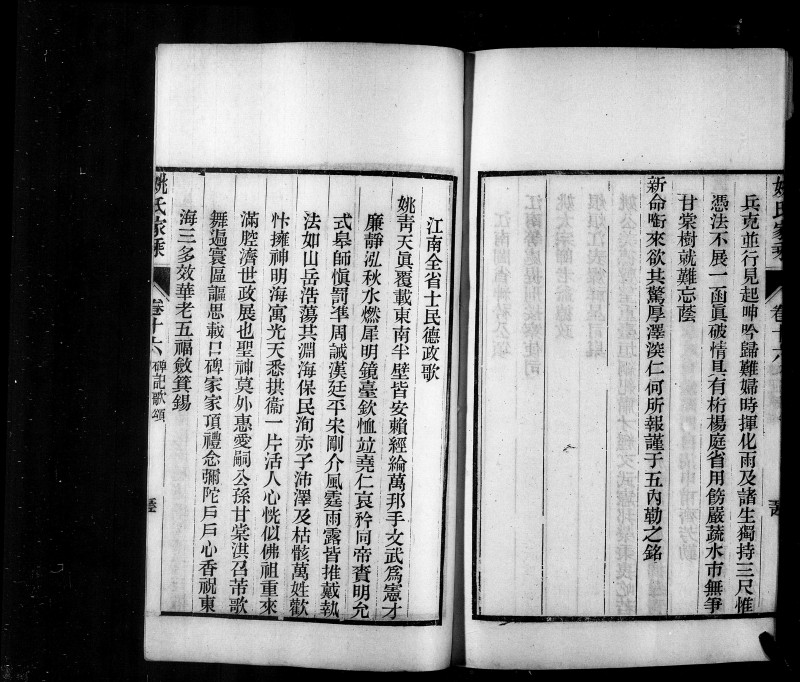 姚氏家乘
卷十六
兵克並行見起呻吟歸難婦時揮化雨及諸生獨持三尺惟
憑法不展一函眞破情具有桁楊庭省用篰嚴蔬水市無爭
甘棠樹就難忘蔭
新命銜來欲共驚厚澤深仁何所報謹于五內勒之銘
江南全省士民德政歌
姚靑天眞覆載東南半壁皆安賴經綸萬邦手文武爲憲才
廉靜泓秋水燃犀明鏡臺欽恤竝堯仁哀矜同帝賚明允
式皋師愼罰準周誠漢廷平宋剛介風霆雨露皆推戴執
法如山岳浩蕩共淵海保民洵赤子沛澤及枯骸萬姓歡
忭擁神明海㝢光天悉拱衞一片活人心恍似佛祖重來
滿腔濟世政展也聖神莫外惠愛嗣公孫甘棠洪召芾歌
舞遍寰區謳思載口碑家家頂禮念彌陀戶戶心香祝東
海三多效華老五福斂箕錫
姚氏家乘
卷十六
碑記歌頌